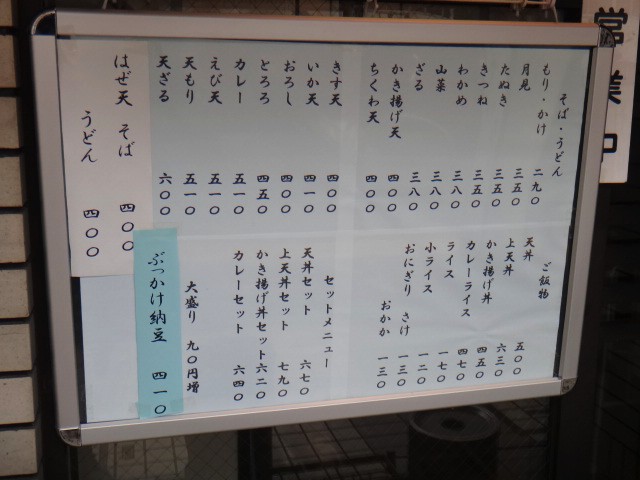 営業中
そば・うどん
もり・かけ 二九〇
月見 三五〇
たぬき 三五〇
きつね 三五〇
わかめ 三八〇
山菜 三八〇
ざる 三八〇
かき揚げ天 四〇〇
ちくわ天 四〇〇
きす天 四〇〇
いか天 四一〇
おろし 四〇〇
とろろ 四五〇
カレー 五一〇
えび天 五一〇
天もり 五一〇
天ざる 六〇〇
はぜ天 そば 四〇〇
うどん 四〇〇
ご飯物
天丼 五〇〇
上天丼 六三〇
かき揚げ丼 四五〇
カレーライス 四七〇
ライス 一七〇
小ライス 一二〇
おにぎり さけ 一三〇
おかか 一三〇
セットメニュー
天丼セット 六七〇
上天丼セット 七九〇
かき揚げ丼セット 六二〇
カレーセット 六四〇
大盛り 九〇円増
ぶっかけ納豆 四一〇